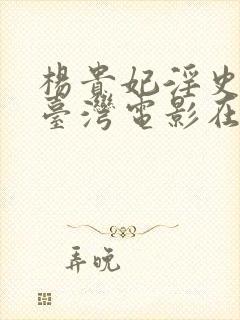 楊貴妃淫史
臺灣電影在
弄晚